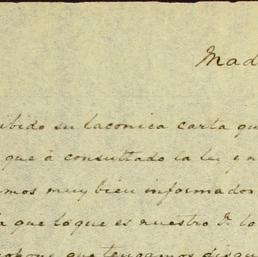 Mad
cibido su laconica carta qu
que á consultado la ley y n
amos muy bien informados
a que loque es nuestro Dr. lo
opone que tengamos disgu